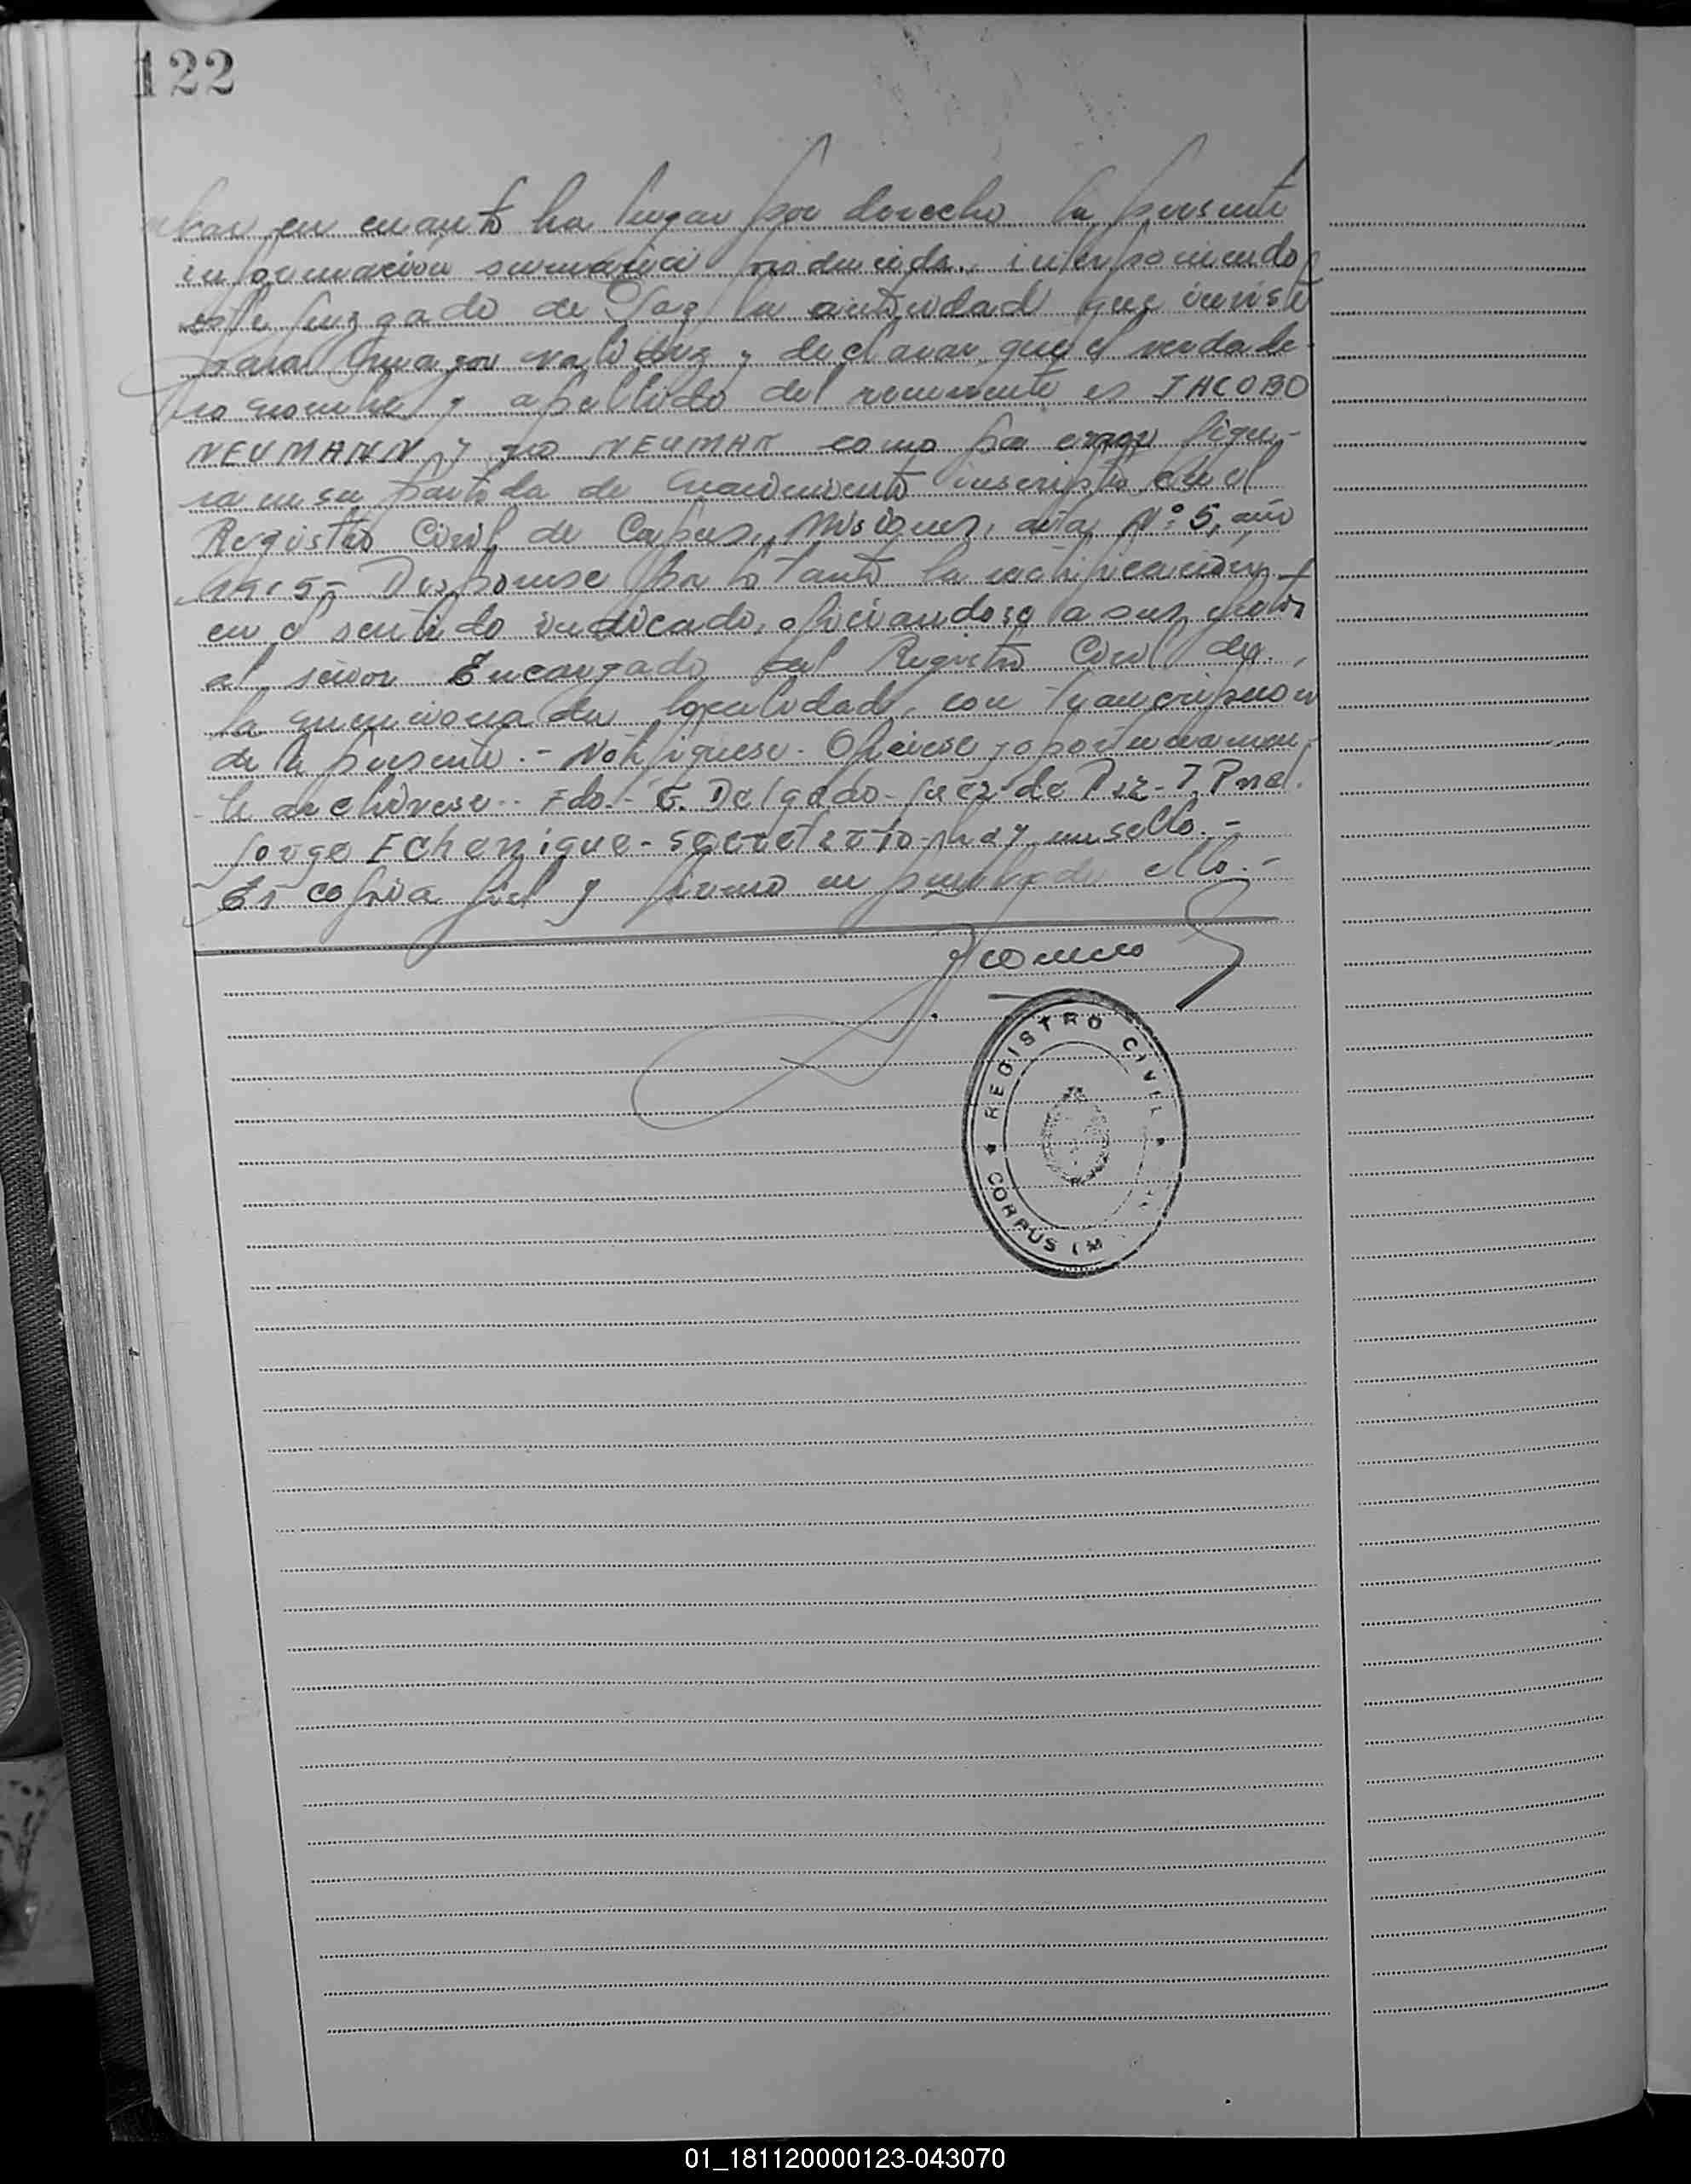 122
en cuanto ha lugar por derecho la presente
informacion sumaria producida, interponiendo
este Juzgado de Paz la autoridad que inviste
para mayor validez y declarar que el verdade-
ro nombre y apellido del recurrente es JACOBO
NEUMANN y no NEUMAN como por error figu-
ra en su partida de nacimiento inscripta en el
Registro Civil de Corpus, Misiones, acta Nº 5, año
1915- Dispónese por lo tanto la rectificación
en el sentido indicado, oficiandose a sus efectos
al señor Encargado del Registro Civil de
la mencionada localidad, con transcripcion
de la presente.- Notifiquese. Oficiese y oportunamen-
te archivese.- Fdo.- E. Delgado- Juez de Paz- J. Pnal.
Jorge Echenique- secretario- hay un sello.-
Es copia fiel y firmo en prueba de ello.-
REGISTRO CIVIL
CORPUS (M
01_181120000123-043070